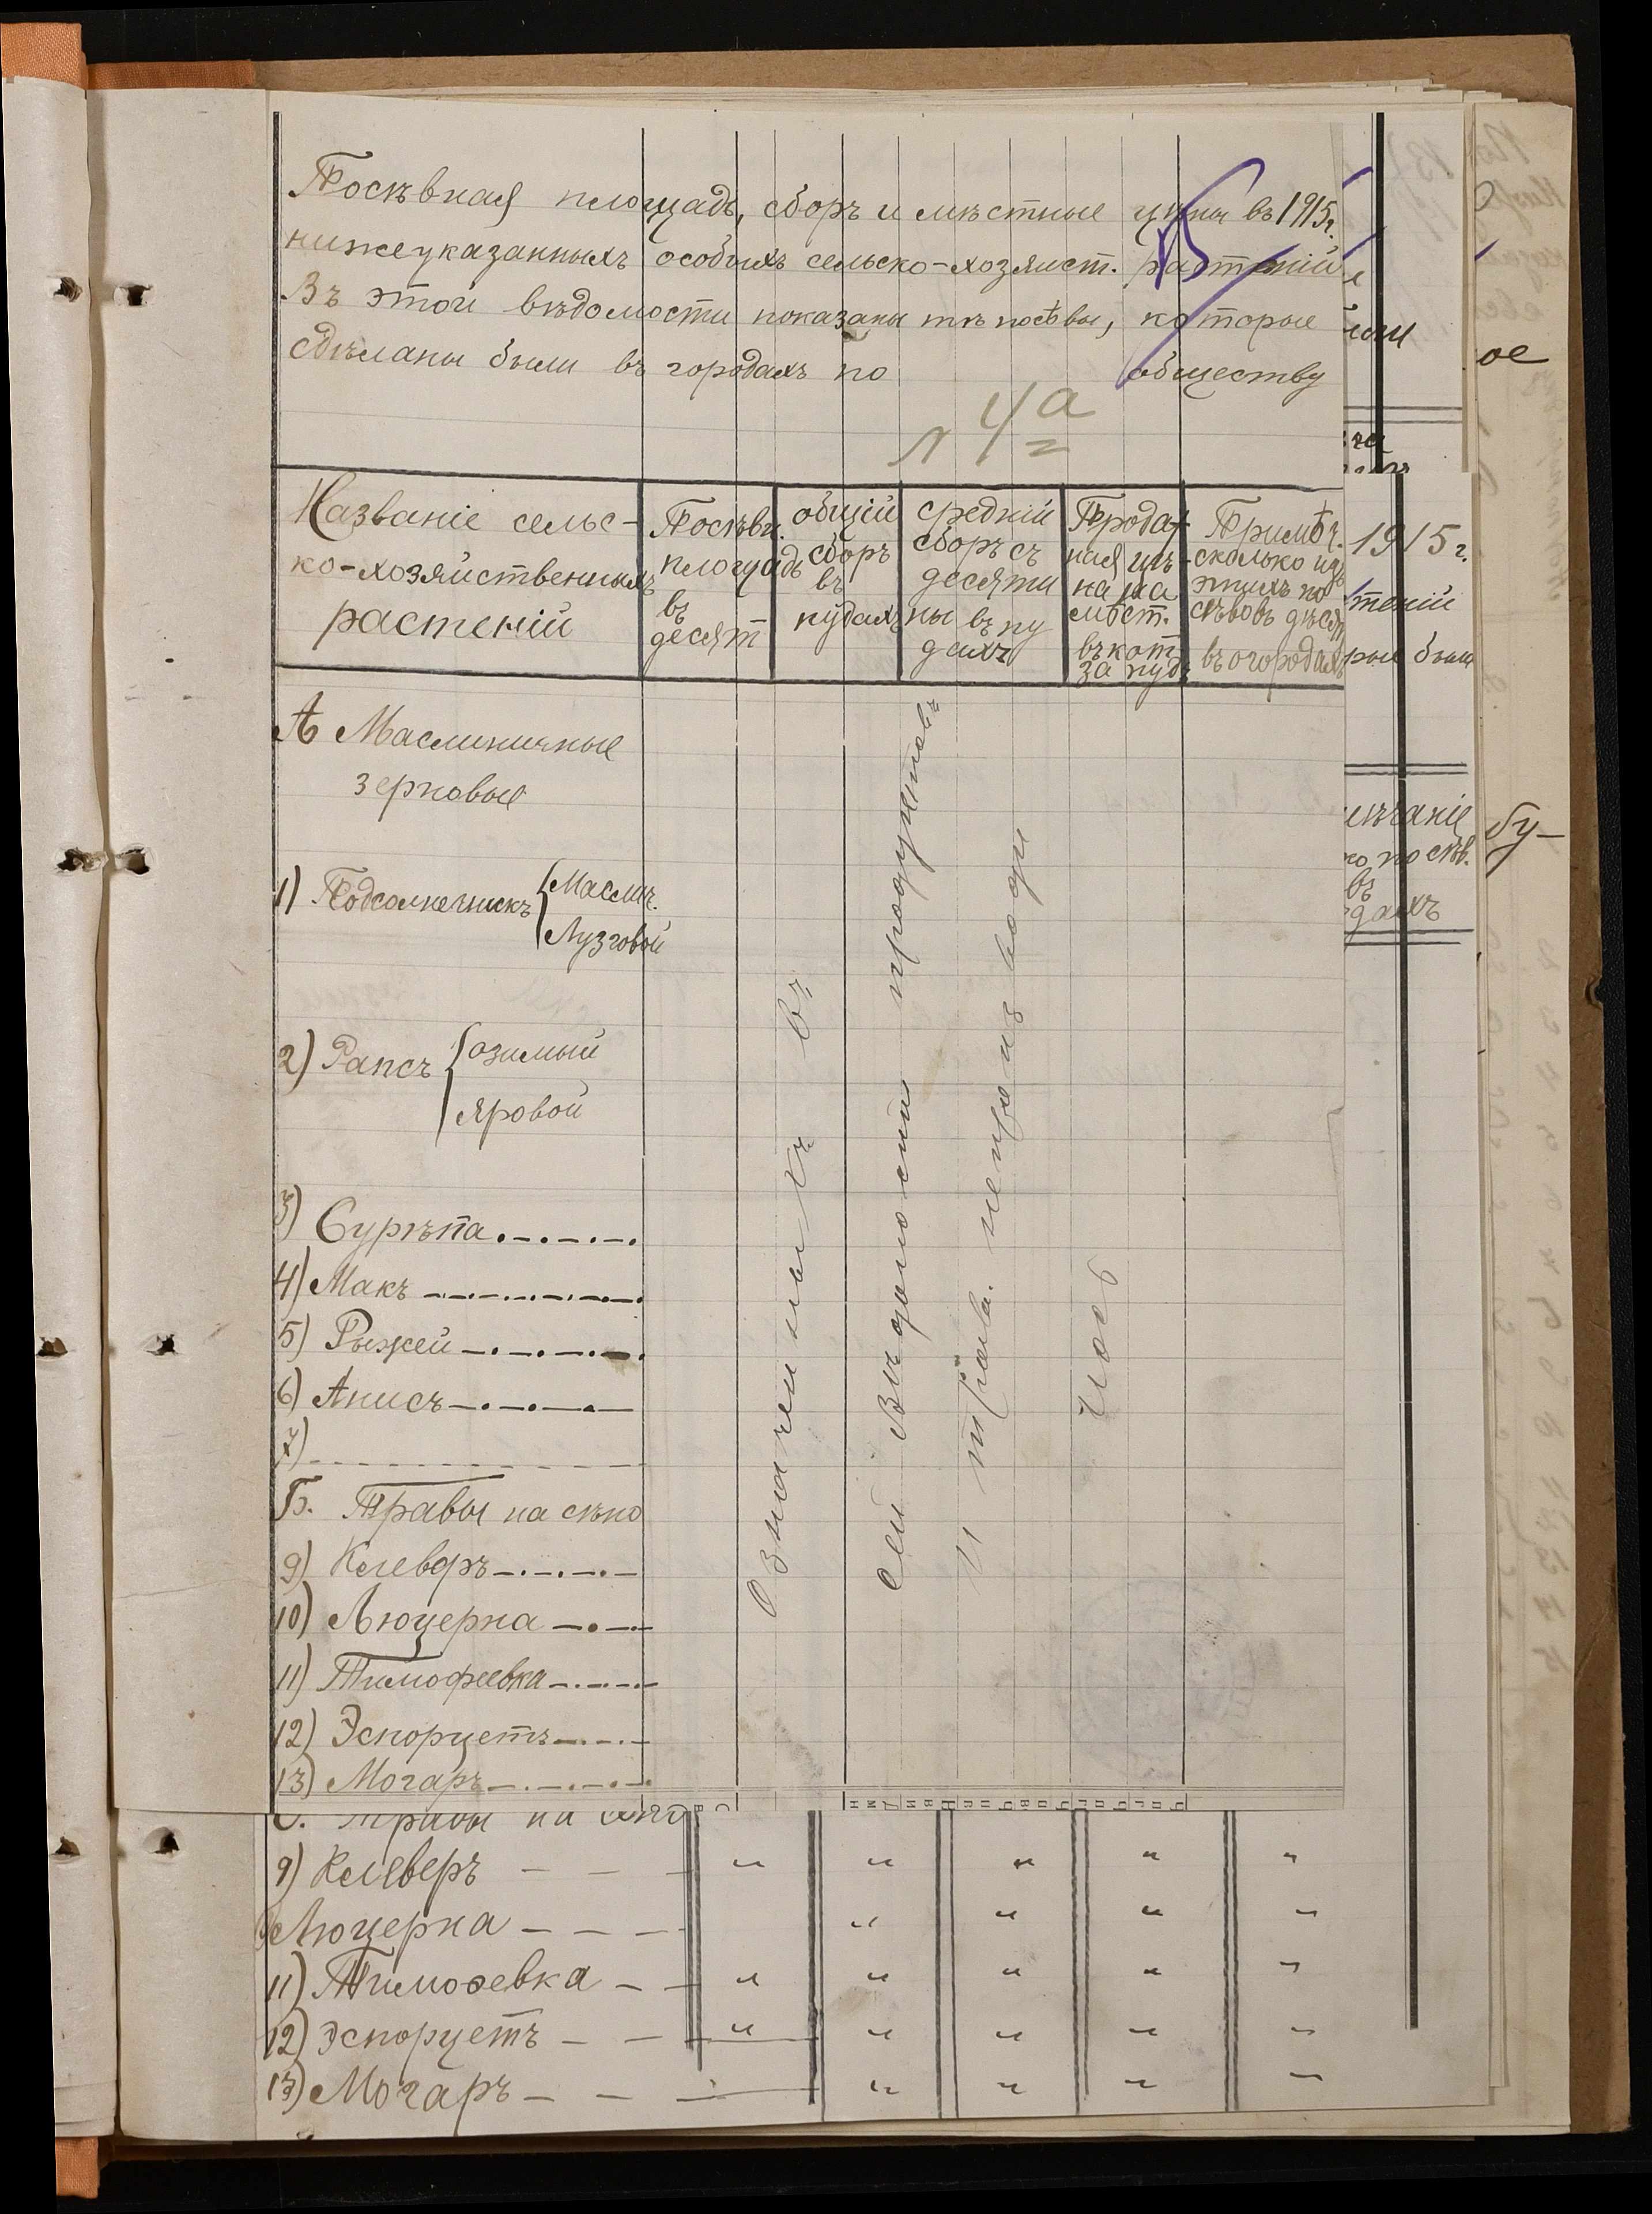 Посѣвная площадь, сборъ и мѣстные цѣны въ 1915г.
нижеуказанныхъ особыхъ сельско-хозяист. растеній
Въ этои вѣдомости показаны тѣ посѣвы, которые
сдѣланы были въ городахъ по обществу
л 4а
Названіе сельс-
ко-хозяиственныхъ
растеній
Посѣвн.
площадь
въ
десят
общій
сборъ
въ
пудахъ
средній
сборъ съ
десяти
ны въ пу
дахъ
Продаж
ная цѣ-
на на
мѣст.
въ коп.
за пудъ
Примѣч.
сколько изъ
этихъ по
сѣвовъ
въ огородахъ
А Масличичные
зерновые
1) Подсолнечникъ { Маслич.
Лузговой
2) Рапсъ { озимый
яровой
3) Сурѣпа
4) Макъ
5) Рыжей
6) Анисъ
7)
Б. Травы на сѣно
9) Клеверъ
10) Люцерна
11) Тимофеевка
12) Эспорцетъ
13) Могаръ
Означенныхъ въ
сей Вѣдомости продуктовъ
и травъ непроизводи
лось
1915 г.
теній
рые были
мѣчаніе
ко посѣв.
въ
дахъ
ое
бу-
Травы на сѣно
9) Клеверъ — — — " " " " "
Люцерна — — — " " " "
11) Тимоѳевка — — " " " " "
12) Эспорцетъ — — " " " " "
13) Могаръ — — — " " " "